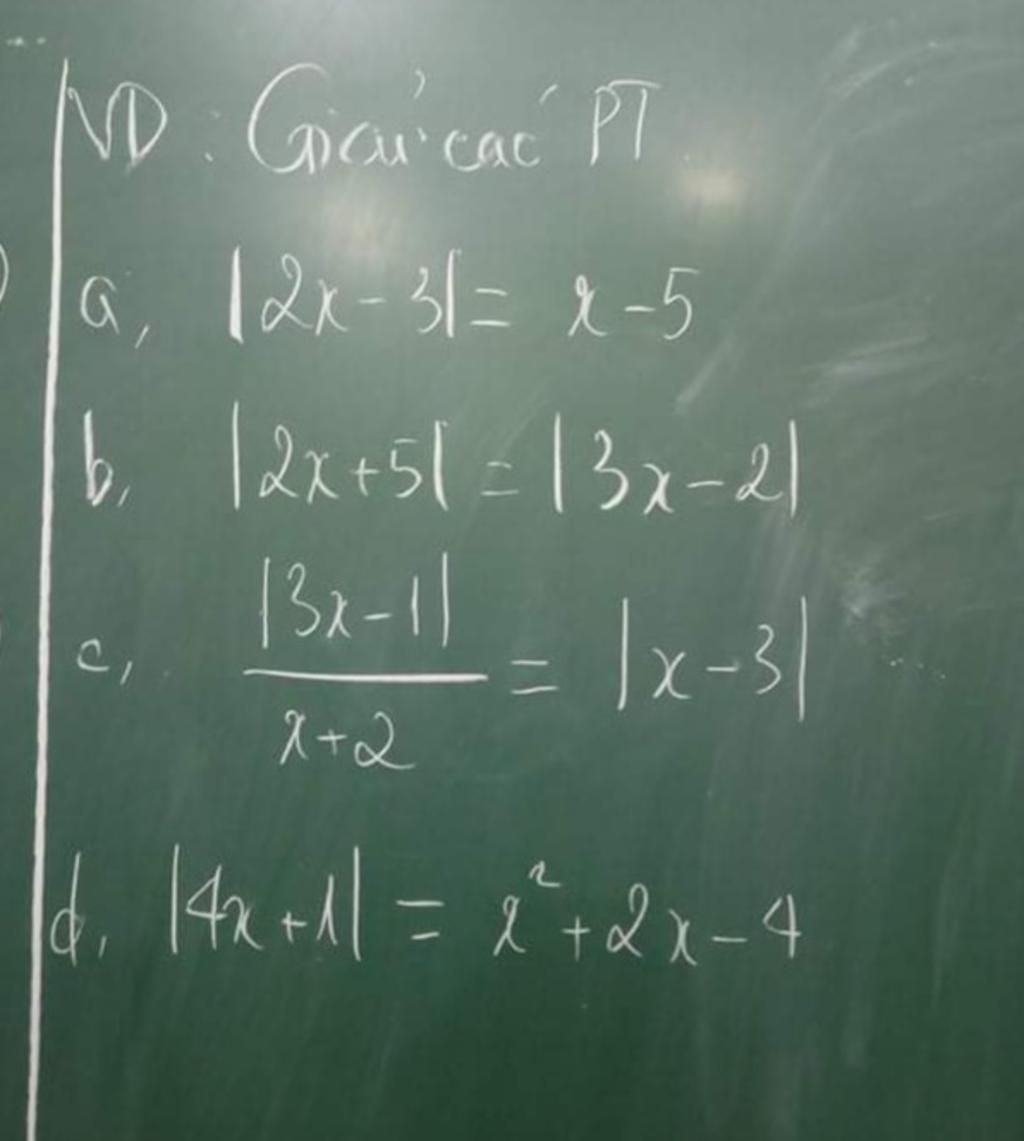 VD: Giải các PT
a, |2x-3| = x-5
b, |2x+5| = |3x-2|
c, |3x-1| / x+2 = |x-3|
d, |4x+1| = x²+2x-4